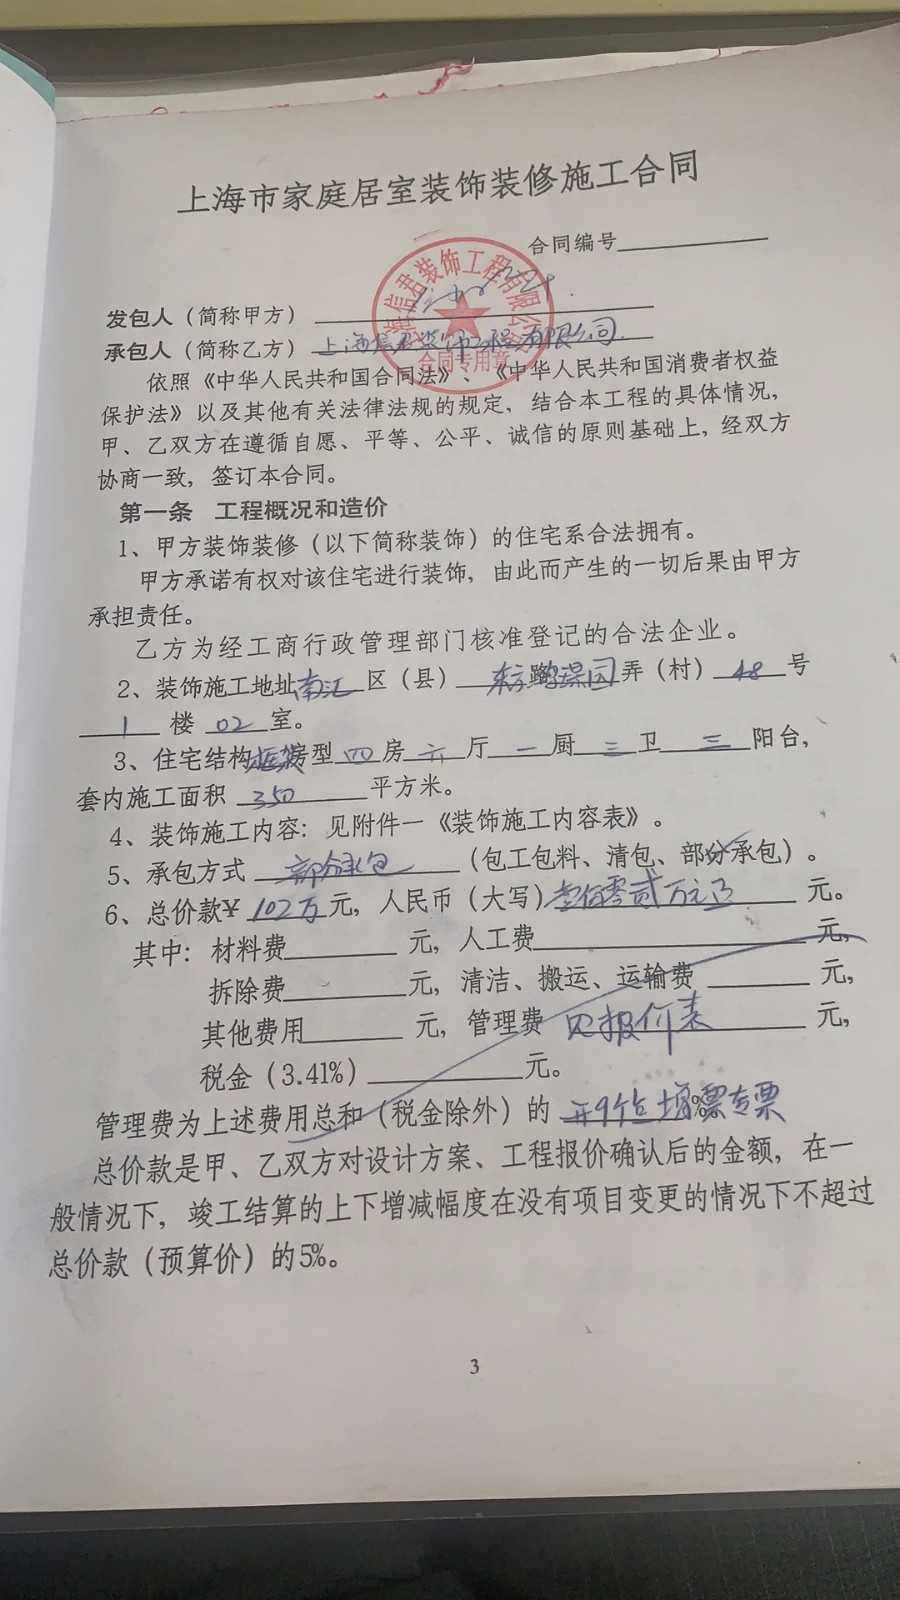 上海市家庭居室装饰装修施工合同
合同编号
信君装饰工程有限公司
合同专用章
发包人（简称甲方）
承包人（简称乙方）上海信君装饰工程有限公司
依照《中华人民共和国合同法》、《中华人民共和国消费者权益
保护法》以及其他有关法律法规的规定，结合本工程的具体情况，
甲、乙双方在遵循自愿、平等、公平、诚信的原则基础上，经双方
协商一致，签订本合同。
第一条 工程概况和造价
1、甲方装饰装修（以下简称装饰）的住宅系合法拥有。
甲方承诺有权对该住宅进行装饰，由此而产生的一切后果由甲方
承担责任。
乙方为经工商行政管理部门核准登记的合法企业。
2、装饰施工地址南汇区（县）弄（村）48号
1楼02室。
3、住宅结构房型四房六厅一厨三卫三阳台，
套内施工面积350平方米。
4、装饰施工内容：见附件一《装饰施工内容表》。
5、承包方式部分承包（包工包料、清包、部分承包）。
6、总价款¥102万元，人民币（大写）壹佰零贰万元正元。
其中：材料费元，人工费元，
拆除费元，清洁、搬运、运输费元，
其他费用元，管理费见报价表元，
税金（3.41%）元。
管理费为上述费用总和（税金除外）的开9个点增票专票%。
总价款是甲、乙双方对设计方案、工程报价确认后的金额，在一
般情况下，竣工结算的上下增减幅度在没有项目变更的情况下不超过
总价款（预算价）的5%。
3